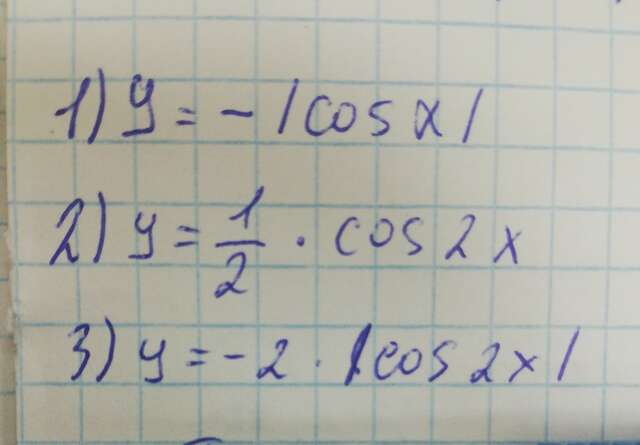 1) y = - |cos x|
2) y = 1/2 · cos 2x
3) y = -2 · |cos 2x|